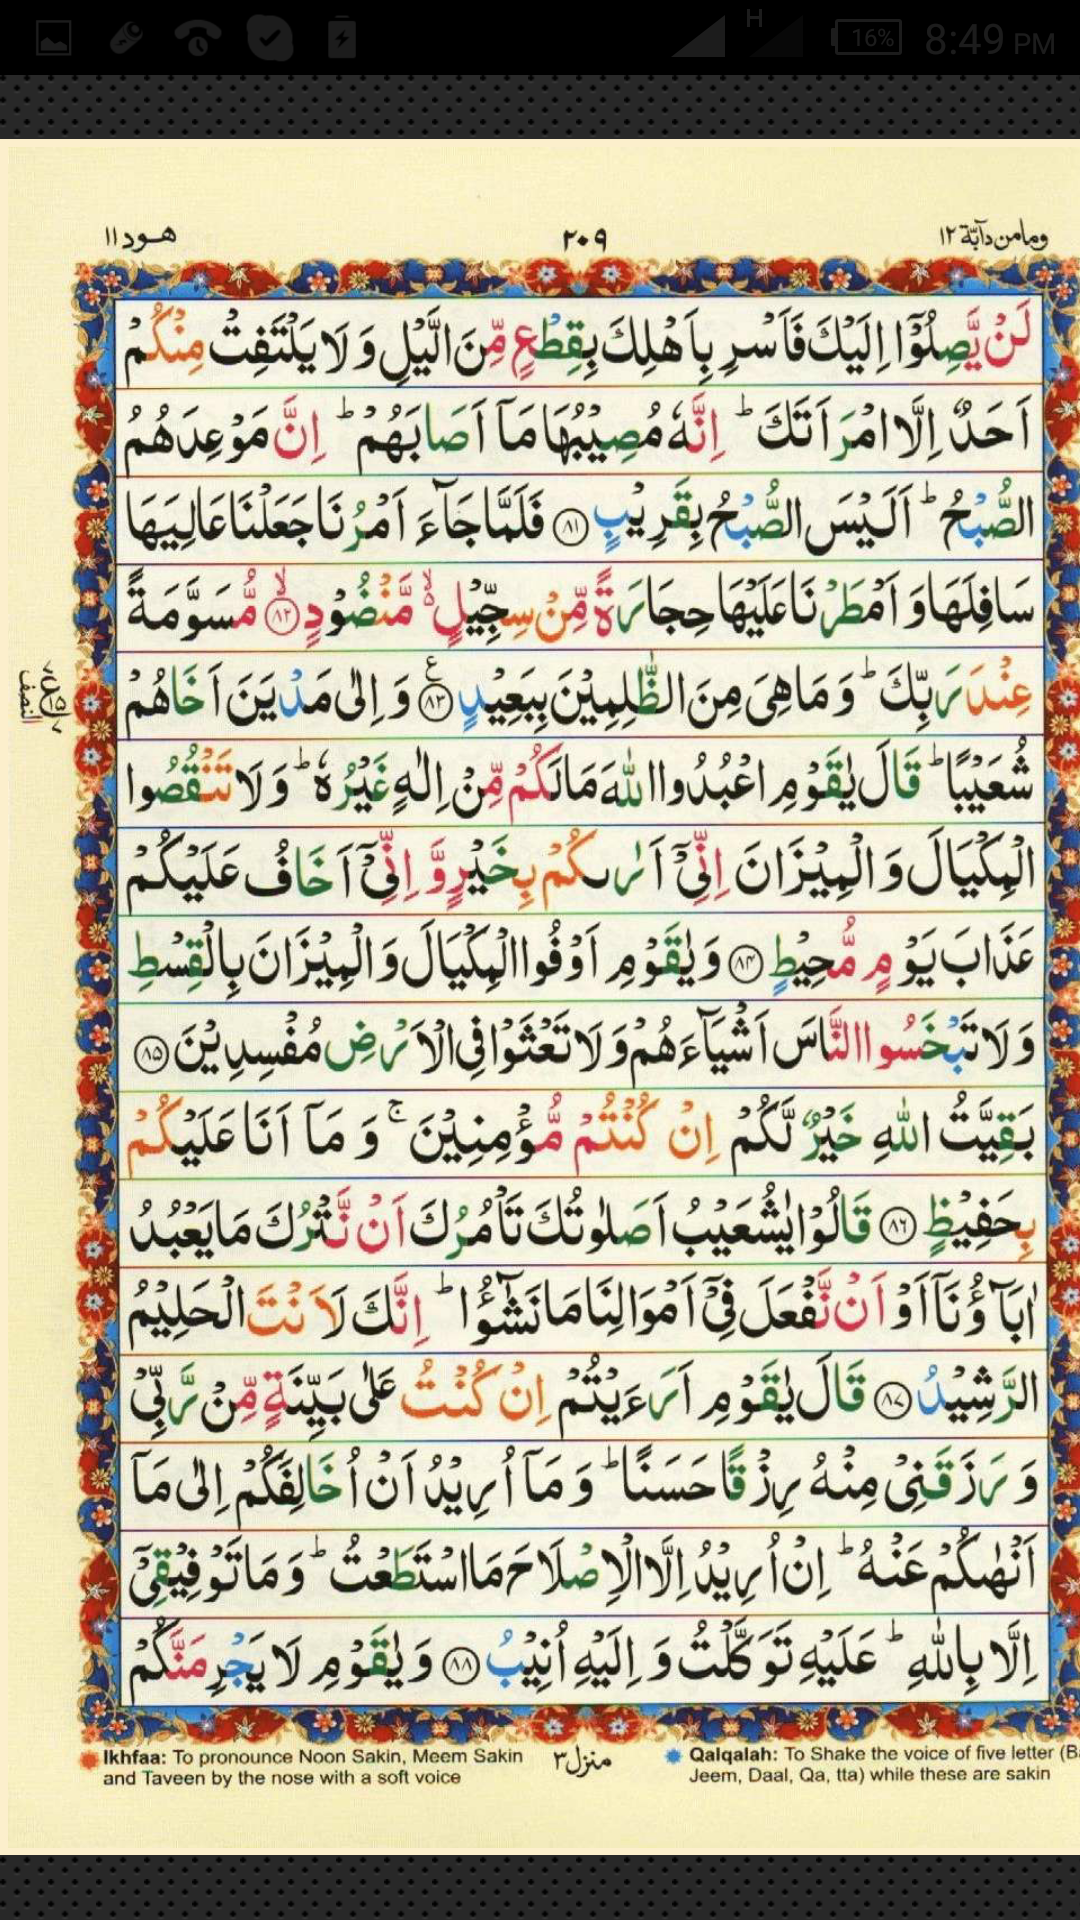 H 16% 8:49 PM
وما من دآبّة ١٢ ٢٠٩ هود ١١
لَنْ يَّصِلُوْۤا اِلَيْكَ فَاَسْرِ بِاَهْلِكَ بِقِطْعٍ مِّنَ الَّيْلِ وَ لَا يَلْتَفِتْ مِنْكُمْ
اَحَدٌ اِلَّا امْرَاَتَكَ ؕ اِنَّهٗ مُصِيْبُهَا مَاۤ اَصَابَهُمْ ؕ اِنَّ مَوْعِدَهُمُ
الصُّبْحُ ؕ اَلَيْسَ الصُّبْحُ بِقَرِيْبٍ ۝۸۱ فَلَمَّا جَآءَ اَمْرُنَا جَعَلْنَا عَالِيَهَا
سَافِلَهَا وَ اَمْطَرْنَا عَلَيْهَا حِجَارَةً مِّنْ سِجِّيْلٍ ۙ۬ مَّنْضُوْدٍ ۝۸۲ۙ مُّسَوَّمَةً
عِنْدَ رَبِّكَ ؕ وَ مَا هِيَ مِنَ الظّٰلِمِيْنَ بِبَعِيْدٍ ۝۸۳ع وَ اِلٰى مَدْيَنَ اَخَاهُمْ
النصف
شُعَيْبًا ؕ قَالَ يٰقَوْمِ اعْبُدُوا اللّٰهَ مَا لَكُمْ مِّنْ اِلٰهٍ غَيْرُهٗ ؕ وَ لَا تَنْقُصُوا
الْمِكْيَالَ وَ الْمِيْزَانَ اِنِّيْۤ اَرٰىكُمْ بِخَيْرٍ وَّ اِنِّيْۤ اَخَافُ عَلَيْكُمْ
عَذَابَ يَوْمٍ مُّحِيْطٍ ۝۸۴ وَ يٰقَوْمِ اَوْفُوا الْمِكْيَالَ وَ الْمِيْزَانَ بِالْقِسْطِ
وَ لَا تَبْخَسُوا النَّاسَ اَشْيَآءَهُمْ وَ لَا تَعْثَوْا فِي الْاَرْضِ مُفْسِدِيْنَ ۝۸۵
بَقِيَّتُ اللّٰهِ خَيْرٌ لَّكُمْ اِنْ كُنْتُمْ مُّؤْمِنِيْنَ ۚ وَ مَاۤ اَنَا عَلَيْكُمْ
بِحَفِيْظٍ ۝۸۶ قَالُوْا يٰشُعَيْبُ اَصَلٰوتُكَ تَاْمُرُكَ اَنْ نَّتْرُكَ مَا يَعْبُدُ
اٰبَآؤُنَاۤ اَوْ اَنْ نَّفْعَلَ فِيْۤ اَمْوَالِنَا مَا نَشٰٓؤُا ؕ اِنَّكَ لَاَنْتَ الْحَلِيْمُ
الرَّشِيْدُ ۝۸۷ قَالَ يٰقَوْمِ اَرَءَيْتُمْ اِنْ كُنْتُ عَلٰى بَيِّنَةٍ مِّنْ رَّبِّيْ
وَ رَزَقَنِيْ مِنْهُ رِزْقًا حَسَنًا ؕ وَ مَاۤ اُرِيْدُ اَنْ اُخَالِفَكُمْ اِلٰى مَاۤ
اَنْهٰىكُمْ عَنْهُ ؕ اِنْ اُرِيْدُ اِلَّا الْاِصْلَاحَ مَا اسْتَطَعْتُ ؕ وَ مَا تَوْفِيْقِيْۤ
اِلَّا بِاللّٰهِ ؕ عَلَيْهِ تَوَكَّلْتُ وَ اِلَيْهِ اُنِيْبُ ۝۸۸ وَ يٰقَوْمِ لَا يَجْرِمَنَّكُمْ
Ikhfaa: To pronounce Noon Sakin, Meem Sakin
and Taveen by the nose with a soft voice
منزل ٣
Qalqalah: To Shake the voice of five letter (Ba
Jeem, Daal, Qa, tta) while these are sakin